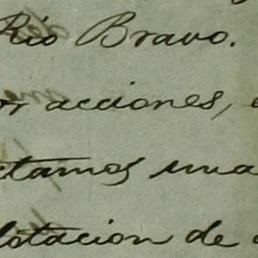 Rio Bravo.
or acciones,
ctamos una
lotacion de